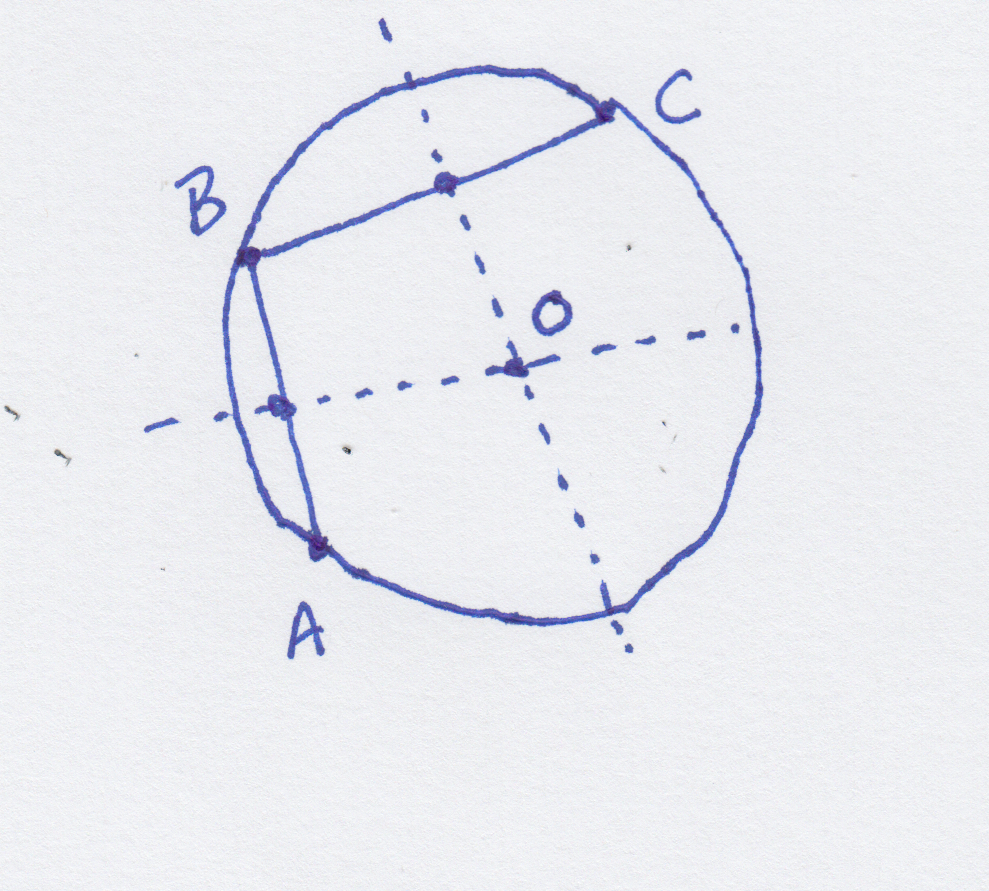 C
B
O
A